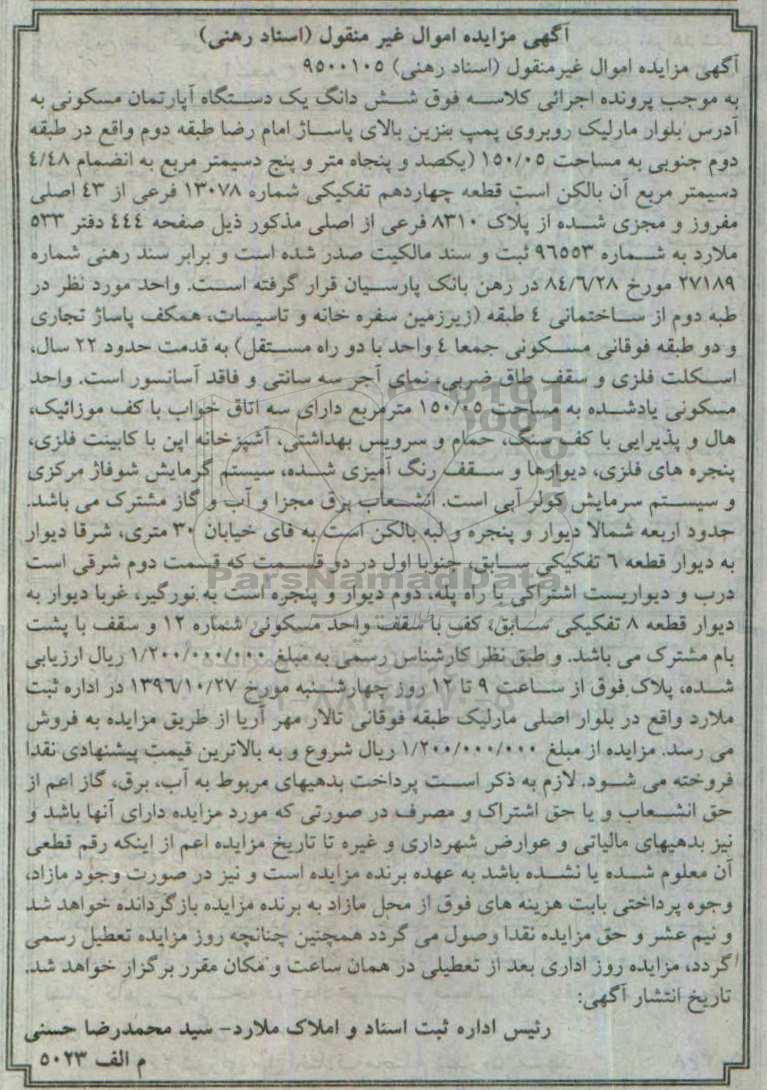 آگهی مزایده اموال غیر منقول (اسناد رهنی)
آگهی مزایده اموال غیرمنقول (اسناد رهنی) ۹۵۰۰۱۰۵
به موجب پرونده اجرائی کلاسه فوق شش دانگ یک دستگاه آپارتمان مسکونی به
آدرس بلوار مارلیک روبروی پمپ بنزین بالای پاساژ امام رضا طبقه دوم واقع در طبقه
دوم جنوبی به مساحت ۱۵۰/۰۵ (یکصد و پنجاه متر و پنج دسیمتر مربع به انضمام ۴/۴۸
دسیمتر مربع آن بالکن است قطعه چهاردهم تفکیکی شماره ۱۳۰۷۸ فرعی از ۴۳ اصلی
مفروز و مجزی شده از پلاک ۸۳۱۰ فرعی از اصلی مذکور ذیل صفحه ۴۴۴ دفتر ۵۳۳
ملارد به شماره ۹۶۵۵۳ ثبت و سند مالکیت صدر شده است و برابر سند رهنی شماره
۲۷۱۸۹ مورخ ۸۴/۶/۲۸ در رهن بانک پارسیان قرار گرفته است. واحد مورد نظر در
طبه دوم از ساختمانی ۴ طبقه (زیرزمین سفره خانه و تاسیسات، همکف پاساژ تجاری
و دو طبقه فوقانی مسکونی جمعا ۴ واحد با دو راه مستقل) به قدمت حدود ۲۲ سال،
اسکلت فلزی و سقف طاق ضربی، نمای آجر سه سانتی و فاقد آسانسور است. واحد
مسکونی یادشده به مساحت ۱۵۰/۰۵ مترمربع دارای سه اتاق خواب با کف موزائیک،
هال و پذیرایی با کف سنگ، حمام و سرویس بهداشتی، آشپزخانه اپن با کابینت فلزی،
پنجره های فلزی، دیوارها و سقف رنگ آمیزی شده، سیستم گرمایش شوفاژ مرکزی
و سیستم سرمایش کولر آبی است. انشعاب برق مجزا و آب و گاز مشترک می باشد.
حدود اربعه شمالا دیوار و پنجره و لبه بالکن است به فای خیابان ۳۰ متری، شرقا دیوار
به دیوار قطعه ۶ تفکیکی سابق، جنوبا اول در دو قسمت که قسمت دوم شرقی است
درب و دیواریست اشتراکی با راه پله، دوم دیوار و پنجره است به نورگیر، غربا دیوار به
دیوار قطعه ۸ تفکیکی سابق، کف با سقف واحد مسکونی شماره ۱۲ و سقف با پشت
بام مشترک می باشد. و طبق نظر کارشناس رسمی به مبلغ ۱/۲۰۰/۰۰۰/۰۰۰ ریال ارزیابی
شده، پلاک فوق از ساعت ۹ تا ۱۲ روز چهارشنبه مورخ ۱۳۹۶/۱۰/۲۷ در اداره ثبت
ملارد واقع در بلوار اصلی مارلیک طبقه فوقانی تالار مهر آریا از طریق مزایده به فروش
می رسد. مزایده از مبلغ ۱/۲۰۰/۰۰۰/۰۰۰ ریال شروع و به بالاترین قیمت پیشنهادی نقدا
فروخته می شود. لازم به ذکر است پرداخت بدهیهای مربوط به آب، برق، گاز اعم از
حق انشعاب و یا حق اشتراک و مصرف در صورتی که مورد مزایده دارای آنها باشد و
نیز بدهیهای مالیاتی و عوارض شهرداری و غیره تا تاریخ مزایده اعم از اینکه رقم قطعی
آن معلوم شده یا نشده باشد به عهده برنده مزایده است و نیز در صورت وجود مازاد،
وجوه پرداختی بابت هزینه های فوق از محل مازاد به برنده مزایده بازگردانده خواهد شد
و نیم عشر و حق مزایده نقدا وصول می گردد همچنین چنانچه روز مزایده تعطیل رسمی
گردد، مزایده روز اداری بعد از تعطیلی در همان ساعت و مکان مقرر برگزار خواهد شد.
تاریخ انتشار آگهی:
رئیس اداره ثبت اسناد و املاک ملارد- سید محمدرضا حسنی
م الف ۵۰۲۳
ParsNamadData